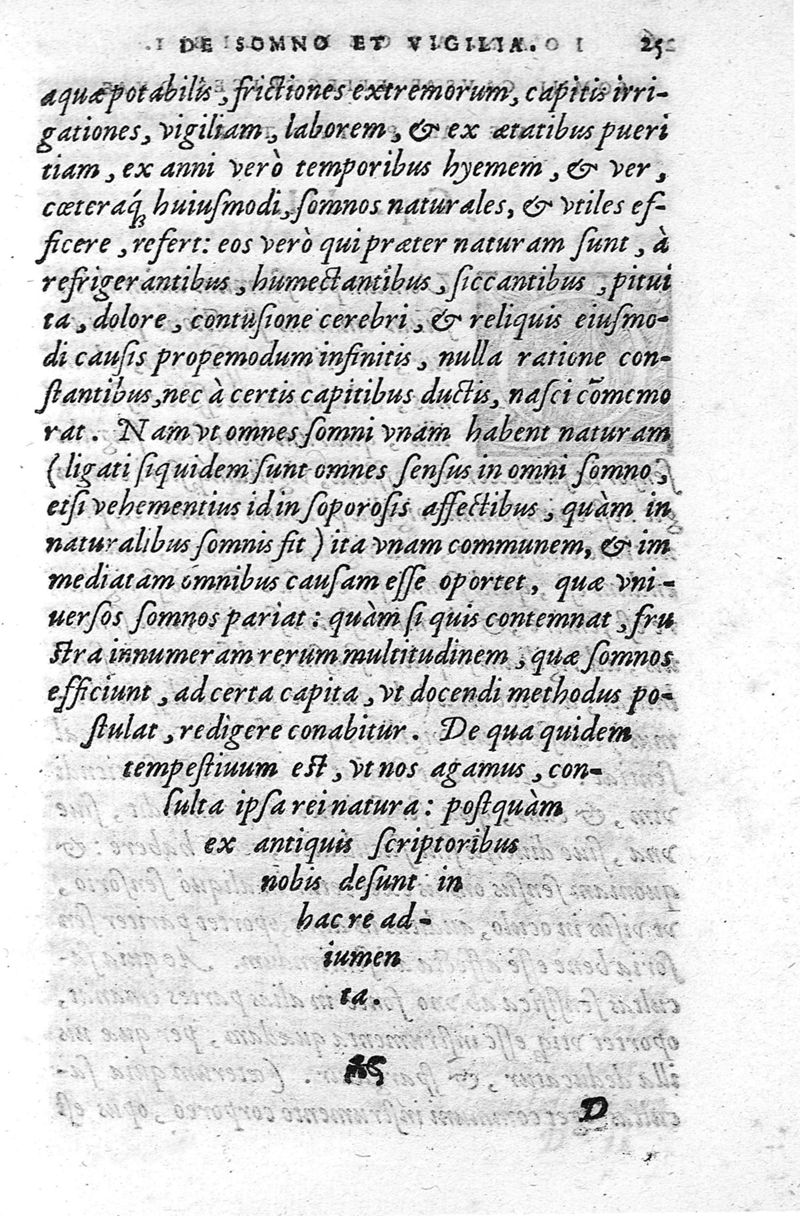 DE SOMNO ET VIGILIA. 25
aquæ potabilis, frictiones extremorum, capitis irri-
gationes, vigiliam, laborem, & ex ætatibus pueri
tiam, ex anni verò temporibus hyemem, & ver,
cœteraq́; huiusmodi, somnos naturales, & vtiles ef-
ficere, refert: eos verò qui præter naturam sunt, à
refrigerantibus, humectantibus, siccantibus, pitui
ta, dolore, contusione cerebri, & reliquis eiusmo-
di causis propemodum infinitis, nulla ratione con-
stantibus, nec à certis capitibus ductis, nasci cõmemo
rat. Nam vt omnes somni vnam habent naturam
(ligati siquidem sunt omnes sensus in omni somno,
etsi vehementius id in soporosis affectibus, quàm in
naturalibus somnis fit) ita vnam communem, & im
mediatam omnibus causam esse oportet, quæ vni-
uersos somnos pariat: quàm si quis contemnat, fru
stra innumeram rerum multitudinem, quæ somnos
efficiunt, ad certa capita, vt docendi methodus po-
stulat, redigere conabitur. De qua quidem
tempestiuum est, vt nos agamus, con-
sulta ipsa rei natura: postquàm
ex antiquis scriptoribus
nobis desunt in
hac re ad-
iumen
ta.
D